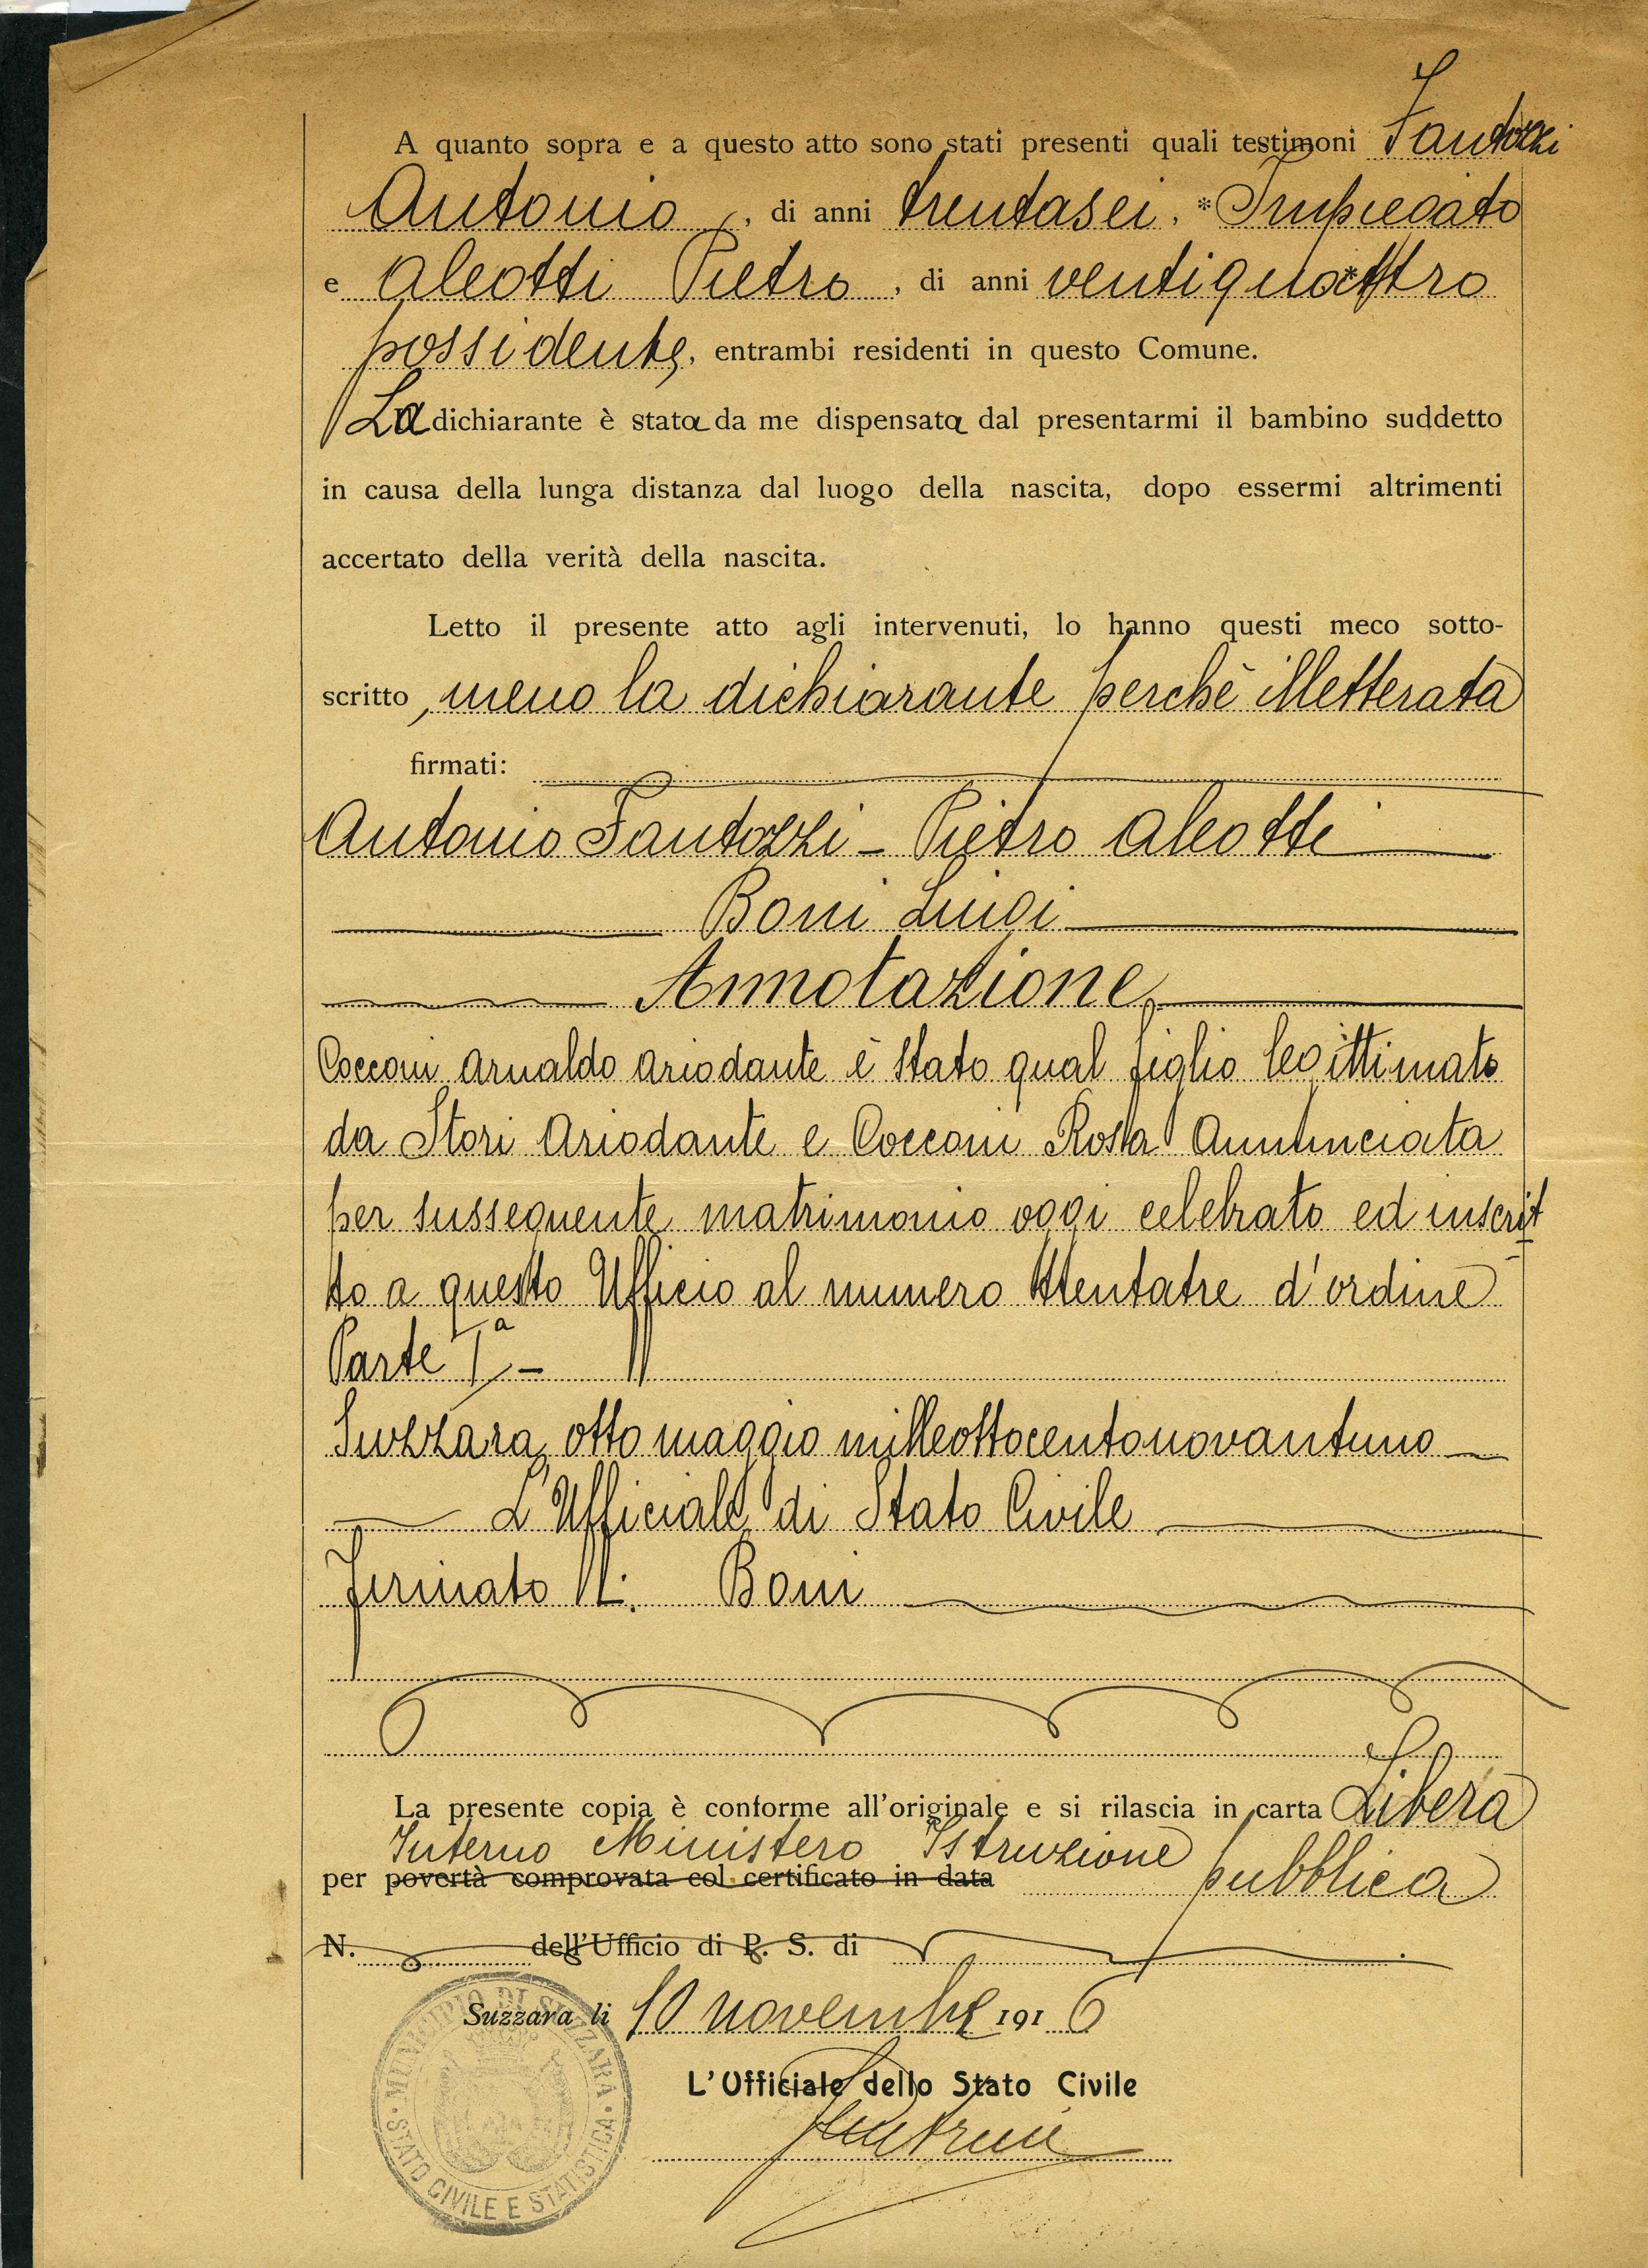 A quanto sopra e a questo atto sono stati presenti quali testimoni Fantozzi
Antonio, di anni trentasei, * Impiegato
e Aleotti Pietro, di anni ventiquattro *
possidente, entrambi residenti in questo Comune.
La dichiarante è stata da me dispensata dal presentarmi il bambino suddetto
in causa della lunga distanza dal luogo della nascita, dopo essermi altrimenti
accertato della verità della nascita.
Letto il presente atto agli intervenuti, lo hanno questi meco sotto-
scritto, meno la dichiarante perchè illetterata
firmati:
Antonio Fantozzi - Pietro Aleotti
Boni Luigi
Annotazione
Cocconi Arnaldo Ariodante è stato qual figlio legittimato
da Stori Ariodante e Cocconi Rosa Annunciata
per susseguente matrimonio oggi celebrato ed inscrit
to a questo Ufficio al numero trentatre d'ordine
Parte Iª -
Suzzara, otto maggio milleottocentonovantuno
L'Ufficiale di Stato Civile
firmato L. Boni
La presente copia è conforme all'originale e si rilascia in carta Libera
Interno Ministero Istruzione
per povertà comprovata col certificato in data pubblica
N. dell'Ufficio di P. S. di .
Suzzara li 10 novembre 1916
L'Ufficiale dello Stato Civile
MUNICIPIO DI SUZZARA
STATO CIVILE E STATISTICA